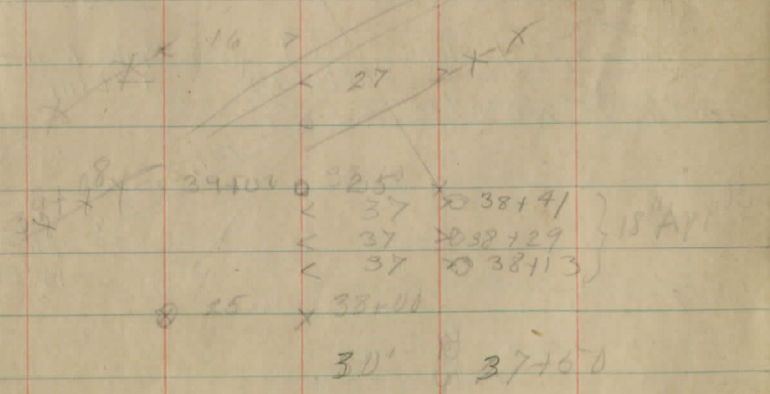 16 >
< 27
39+02 325'
< 37 > 38+41
< 37 > 38+29
< 37 > 38+13
25 x 38+00
30' 37+50